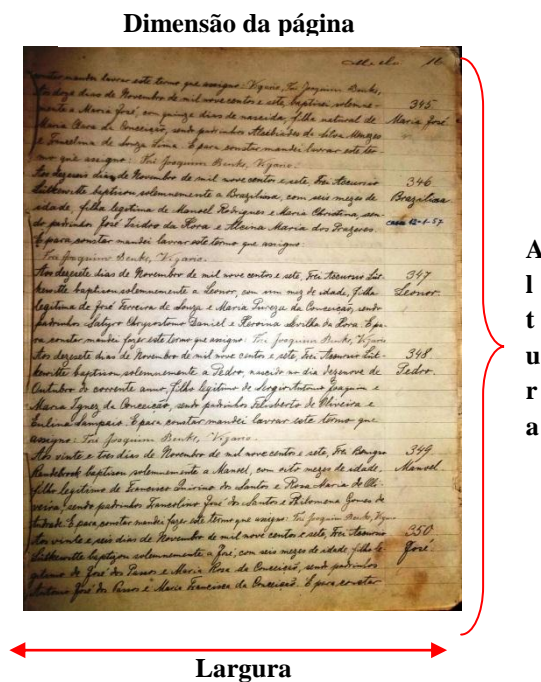 Dimensão da página
constar mandei lavrar este termo que assigno: Vigario, Frei Joaquim Benke,
Aos doze dias de Novembro de mil nove centos e sete, baptisei solemne-
mente a Maria José, com quinze dias de nascida, filha natural de
Maria Clara da Conceição, sendo padrinhos da Silva Menezes
e de Souza Lima. E para constar mandei lavrar este ter-
mo que assigno: Frei Joaquim Benke, Vigario.
345
Maria José
Aos dezeseis dias de Novembro de mil nove centos e sete, Frei
baptisou solemnemente a Brazilina, com seis mezes de
idade, filha legitima de Manoel Rodrigues e Maria Christina, sen-
do padrinhos José Izidro da Hora e Alcina Maria dos Prazeres.
E para constar mandei lavrar este termo que assigno:
Frei Joaquim Benke, Vigario.
346
Brazilina
Aos dezesete dias de Novembro de mil nove centos e sete, Frei
baptisou solemnemente a Leonor, com um mez de idade, filha
legitima de José Ferreira de Souza e Maria da Conceição, sendo
padrinhos Satyro Chrysostomo Daniel e da Hora. E pa-
ra constar mandei fazer este termo que assigno: Frei Joaquim Benke, Vigario
347
Leonor.
Aos dezesete dias de Novembro de mil nove centos e sete, Frei
baptisou solemnemente a Pedro, nascido no dia dezenove de
Outubro do corrente anno, filho legitimo de Sergio Antonio Joaquim e
Maria Ignez da Conceição, sendo padrinhos Felisberto de Oliveira e
Sampaio. E para constar mandei lavrar este termo que
assigno: Frei Joaquim Benke, Vigario.
348
Pedro.
Aos vinte e tres dias de Novembro de mil nove centos e sete, Frei Benigno
baptisou solemnemente a Manoel, com oito mezes de idade,
filho legitimo de Francisco Quirino dos Santos e Rosa Maria de Oli-
veira, sendo padrinhos Francolino José dos Santos e Philomena Gomes de
Andrade. E para constar mandei fazer este termo que assigno: Frei Joaquim Benke,
349
Manoel
Aos vinte e seis dias de Novembro de mil nove centos e sete, Frei
baptisou solemnemente a José, com seis mezes de idade, filho le-
gitimo de José dos Passos e Maria Rosa da Conceição, sendo padrinhos
Antonio José dos Passos e Maria Francisca da Conceição. E para constar
350
José
Altura
Largura